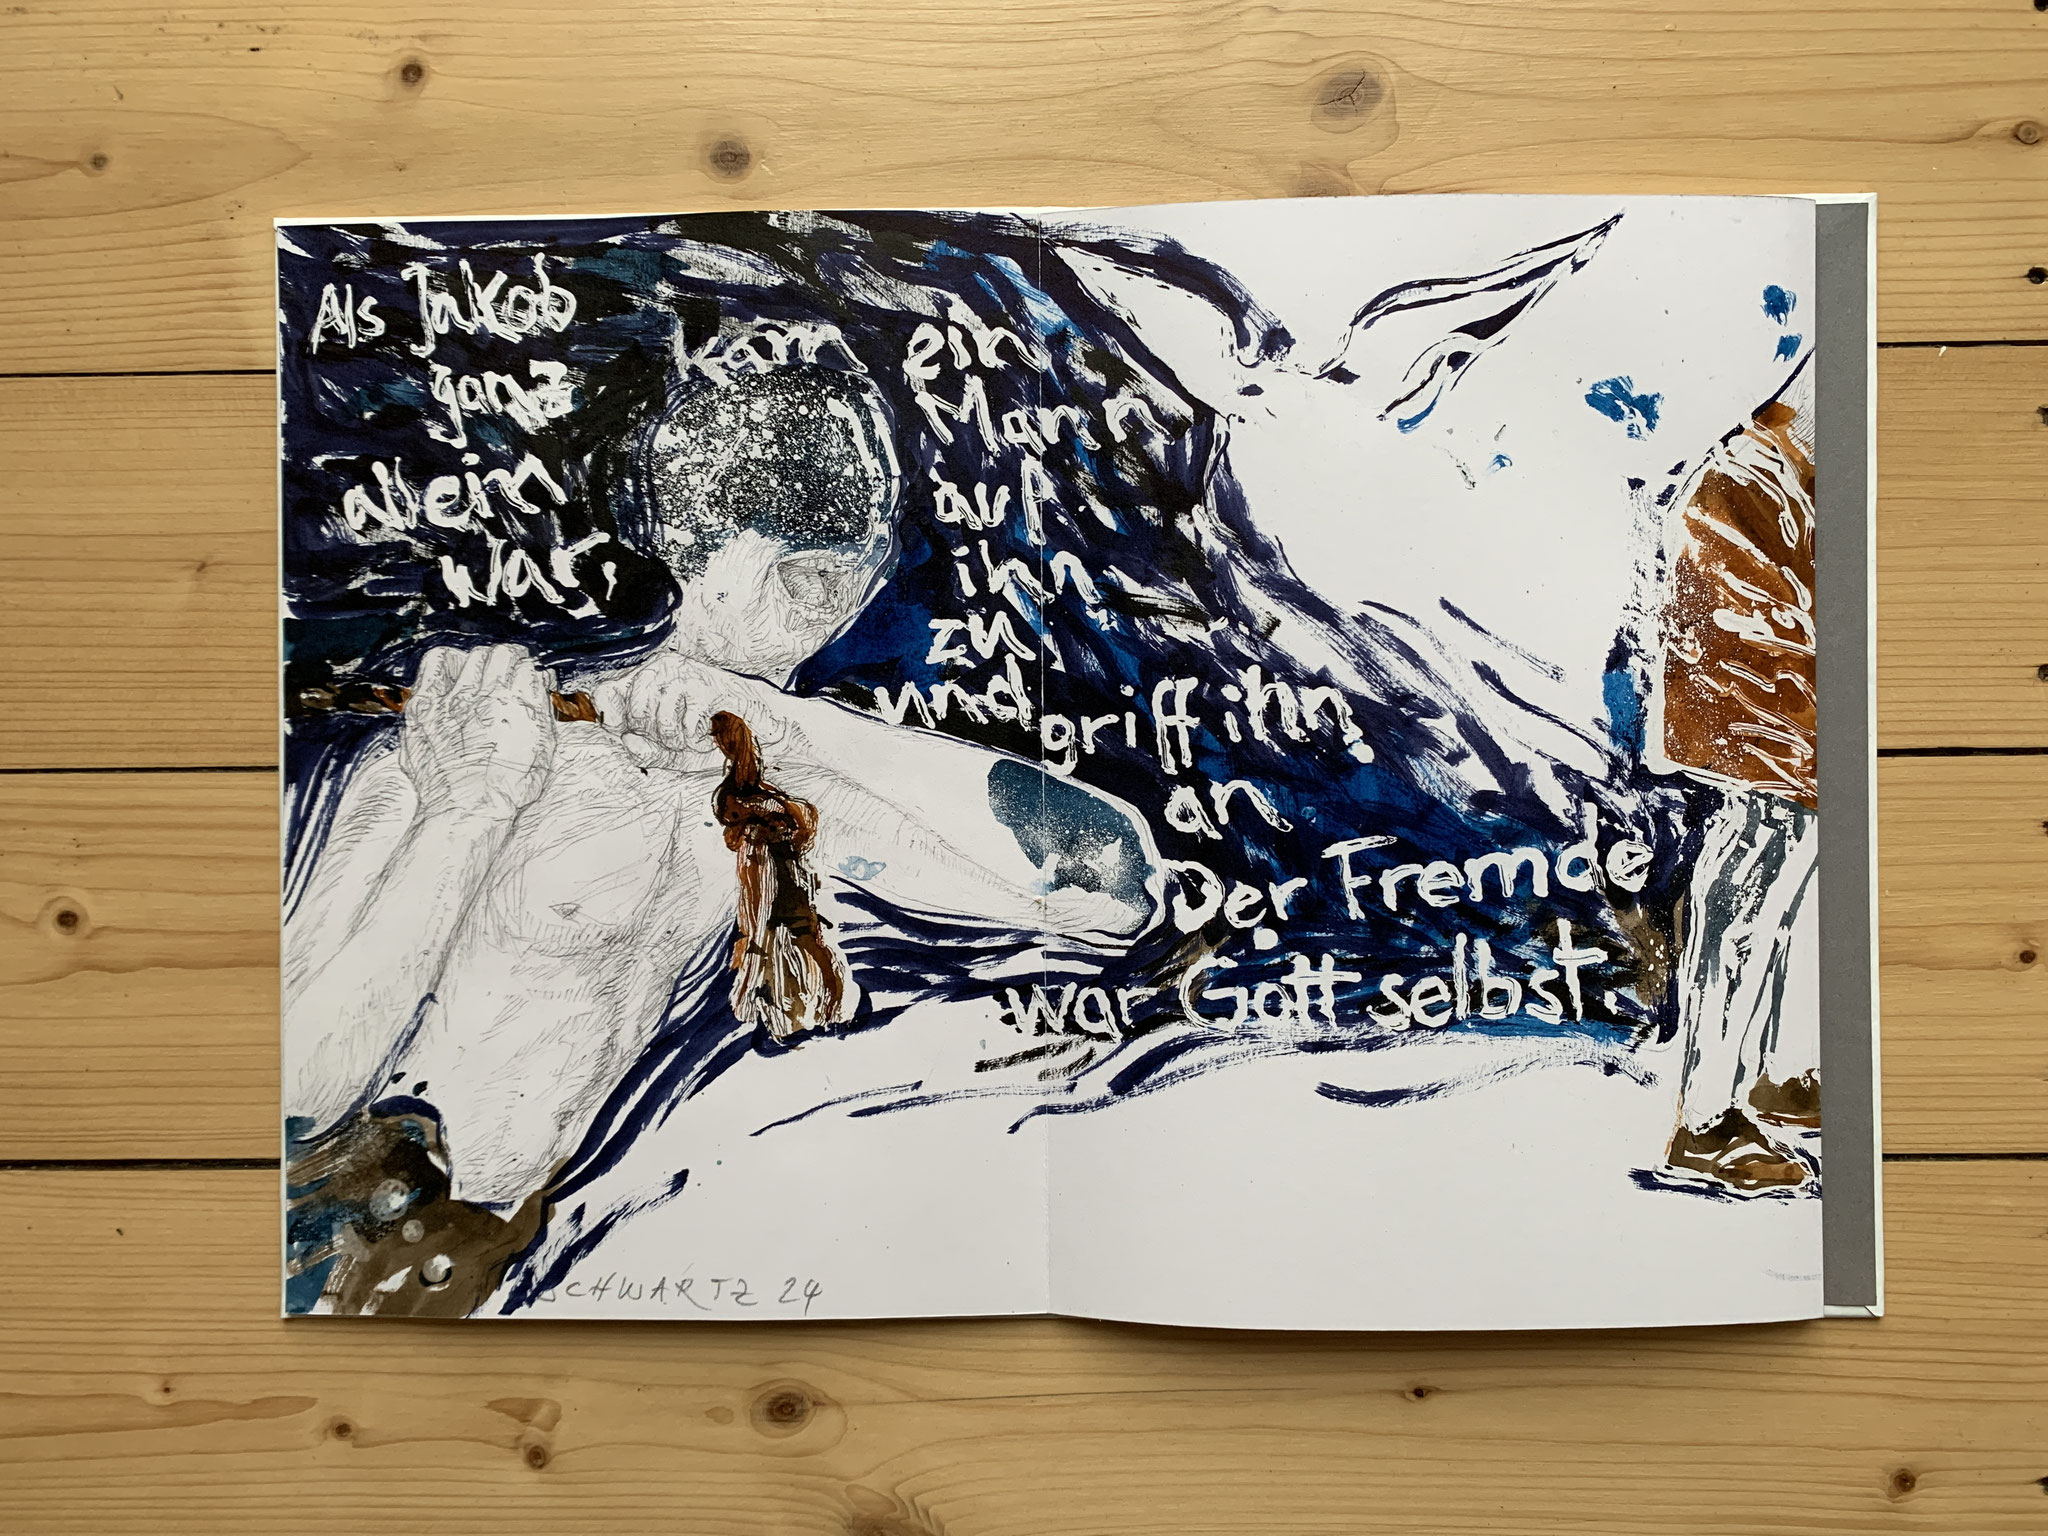 Als Jakob
ganz
allein
war,
kam ein
Mann
auf
ihn
zu
und griff ihn
an.
Der Fremde
war Gott selbst.
SCHWARTZ 24